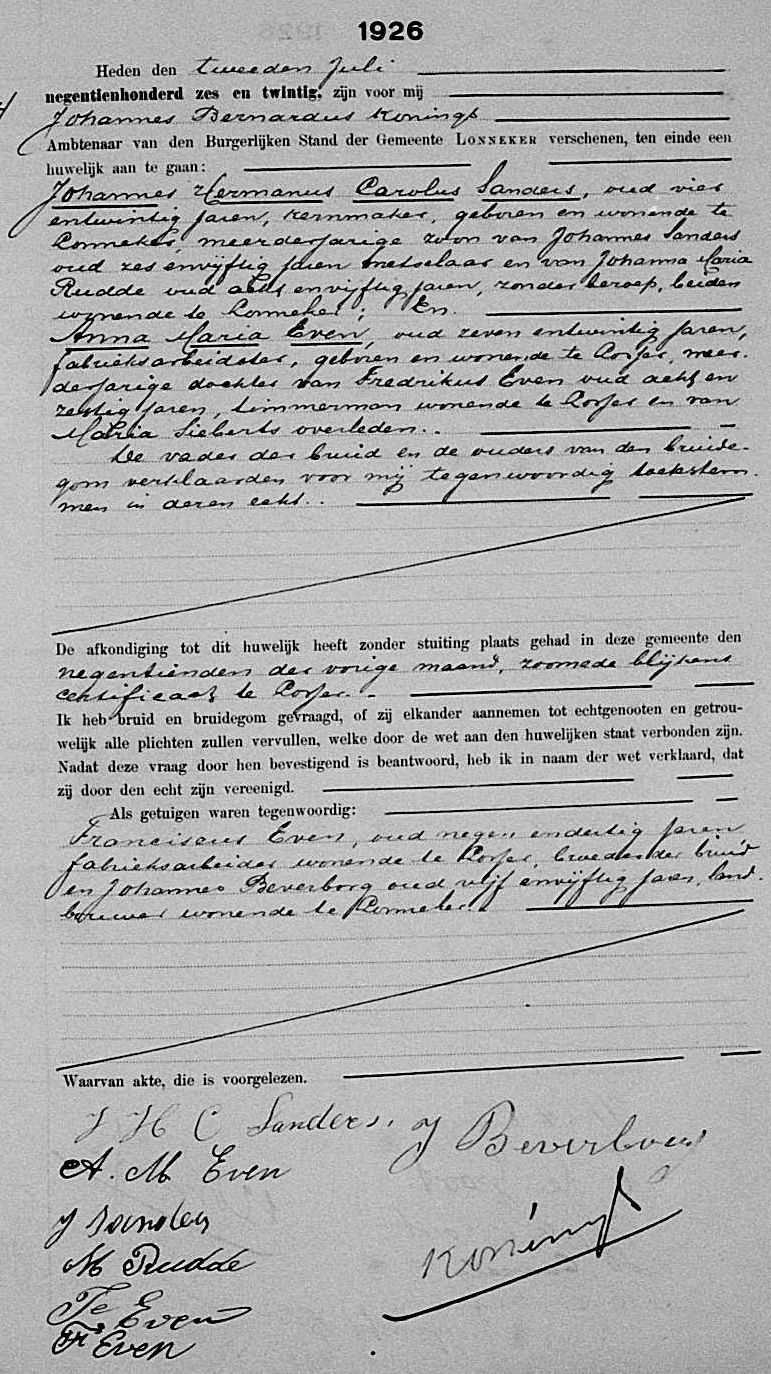 1926
Heden den tweeden Juli
negentienhonderd zes en twintig, zijn voor mij
Johannes Bernardus Koningh
Ambtenaar van den Burgerlijken Stand der Gemeente LONNEKER verschenen, ten einde een
huwelijk aan te gaan:
Johannes Hermanus Carolus Sanders, oud vier
entwintig jaren, kernmaker, geboren en wonende te
Lonneker, meerderjarige zoon van Johannes Sanders
oud zes envijftig jaren metselaar en van Johanna Maria
Rudde oud acht envijftig jaren, zonder beroep, beiden
wonende te Lonneker; En
Anna Maria Even, oud zeven entwintig jaren,
fabrieksarbeidster, geboren en wonende te Losser, meer-
derjarige dochter van Fredrikus Even oud acht en
zestig jaren, timmerman wonende te Losser en van
Maria Sieberts overleden..
De vader der bruid en de ouders van den bruide-
gom verklaarden voor mij tegenwoordig toestem-
men in deren echt..
De afkondiging tot dit huwelijk heeft zonder stuiting plaats gehad in deze gemeente den
negentienden der vorige maand, zoomede blijkens
certificaat te Losser.
Ik heb bruid en bruidegom gevraagd, of zij elkander aannemen tot echtgenooten en getrou-
welijk alle plichten zullen vervullen, welke door de wet aan den huwelijken staat verbonden zijn.
Nadat deze vraag door hen bevestigend is beantwoord, heb ik in naam der wet verklaard, dat
zij door den echt zijn vereenigd.
Als getuigen waren tegenwoordig:
Franciscus Even, oud negen endertig jaren,
fabrieksarbeider wonende te Losser, broeder der bruid
en Johannes Beverborg oud vijf envijftig jaren, land-
bouwer wonende te Lonneker.
Waarvan akte, die is voorgelezen.
J H C Sanders. J Beverborg
A. M Even
J Sanders
M Rudde
Koningh
Even
Fr Even